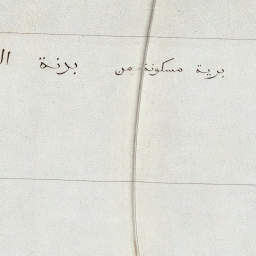 برية مسكونة من بدنة